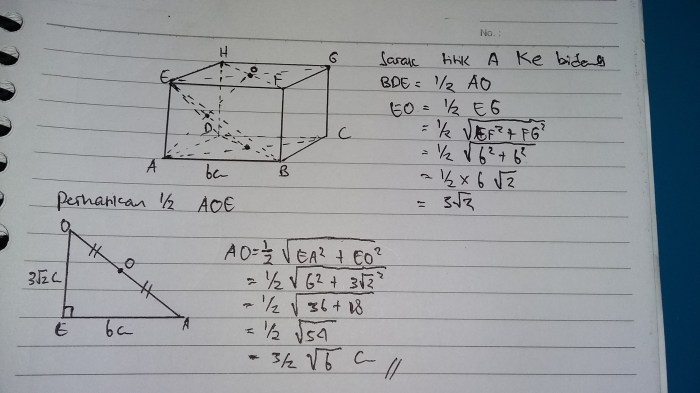 No.:
H
G
E
O
F
D
C
A
6c
B
Jarak titik A Ke bidang
BDE = 1/2 AO
EO = 1/2 EG
= 1/2 √EF² + FG²
= 1/2 √6² + 6²
= 1/2 x 6 √2
= 3√2
Perhatikan 1/2 AOE
O
O
3√2 C
E
6c
A
AO = 1/2 √EA² + EO²
= 1/2 √6² + 3√2²
= 1/2 √36 + 18
= 1/2 √54
= 3/2 √6 C //